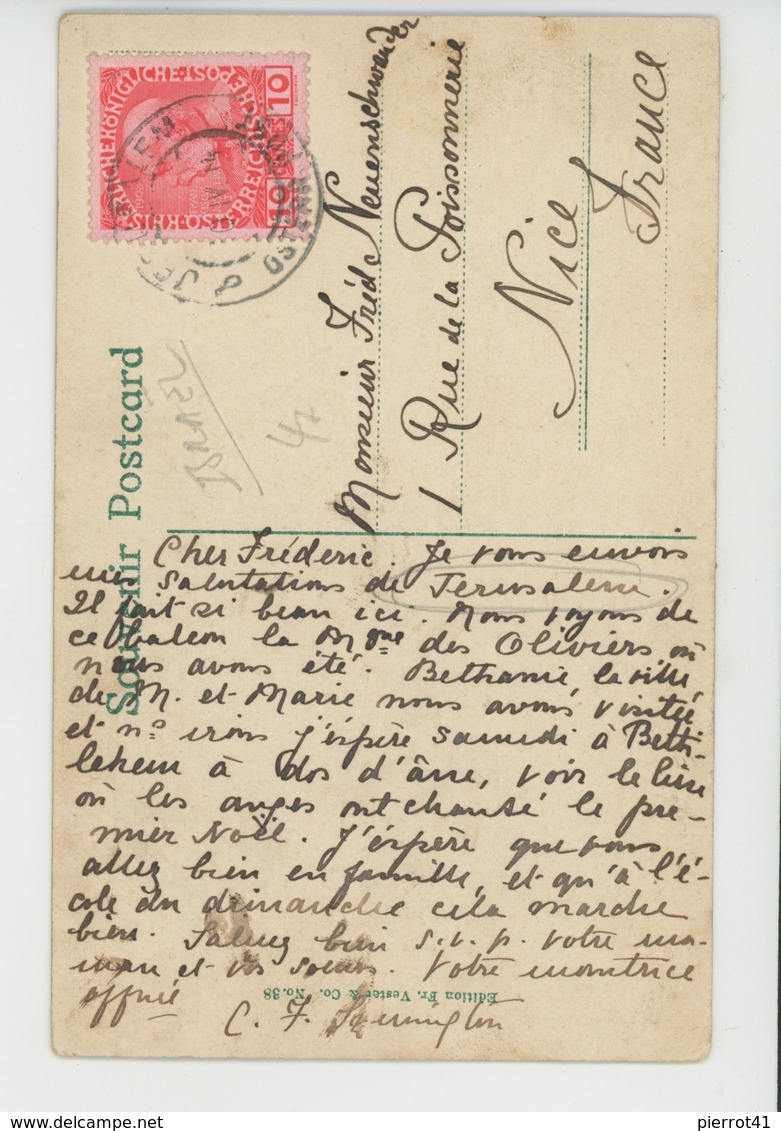 KAISERLICHE·KÖNIGLICHE·ÖSTERREICHISCHE·POST
10 10
Souvenir Postcard
ISRAEL
Monsieur Fréd Neuenschwander
1 Rue de la Poissonnerie
Nice
France
Cher Fréderic. Je vous envois
mes salutations de Jerusalem.
Il fait si beau ici. Nous voyons de
ce balcon la Mgne des Oliviers où
nous avons été. Bethanie la ville
de M. et Marie nous avons visitée
et ns irons j'éspère samedi à Beth-
lehem à dos d'âne, voir le lieu
où les anges ont chanté le pre-
mier Noël. J'éspère que vous
allez bien en famille, et qu'à l'é-
cole du dimanche cela marche
bien. Saluez bien s.v.p. votre ma-
man et vos soeurs. Votre monitrice
affnée
C. F.
Edition Fr. Vester & Co. No. 38
pierrot41